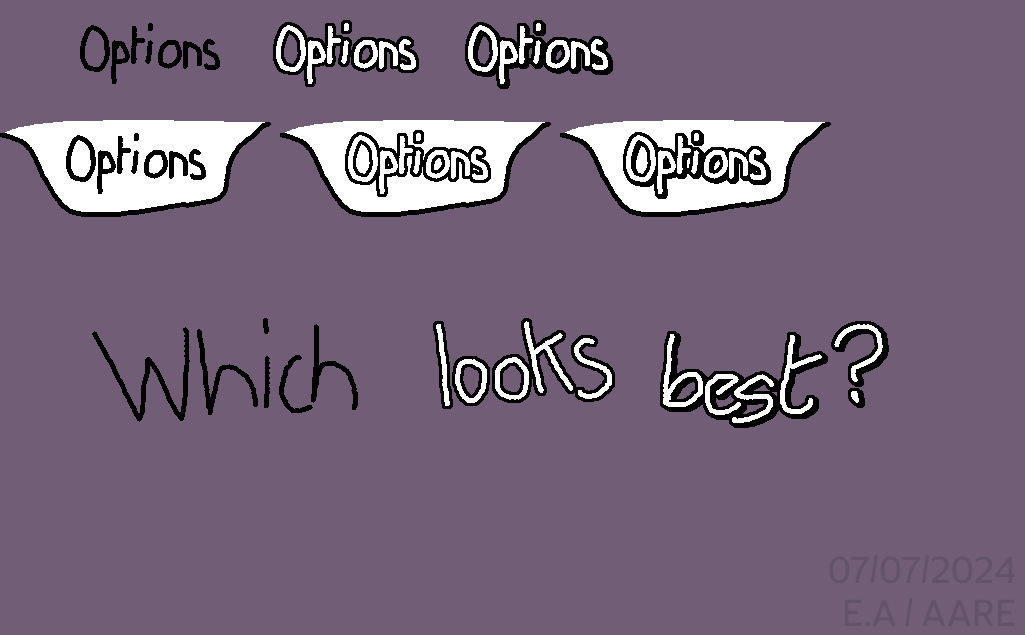 Options Options Options
Options Options Options
Which looks best?
07/07/2024
E.A / AARE